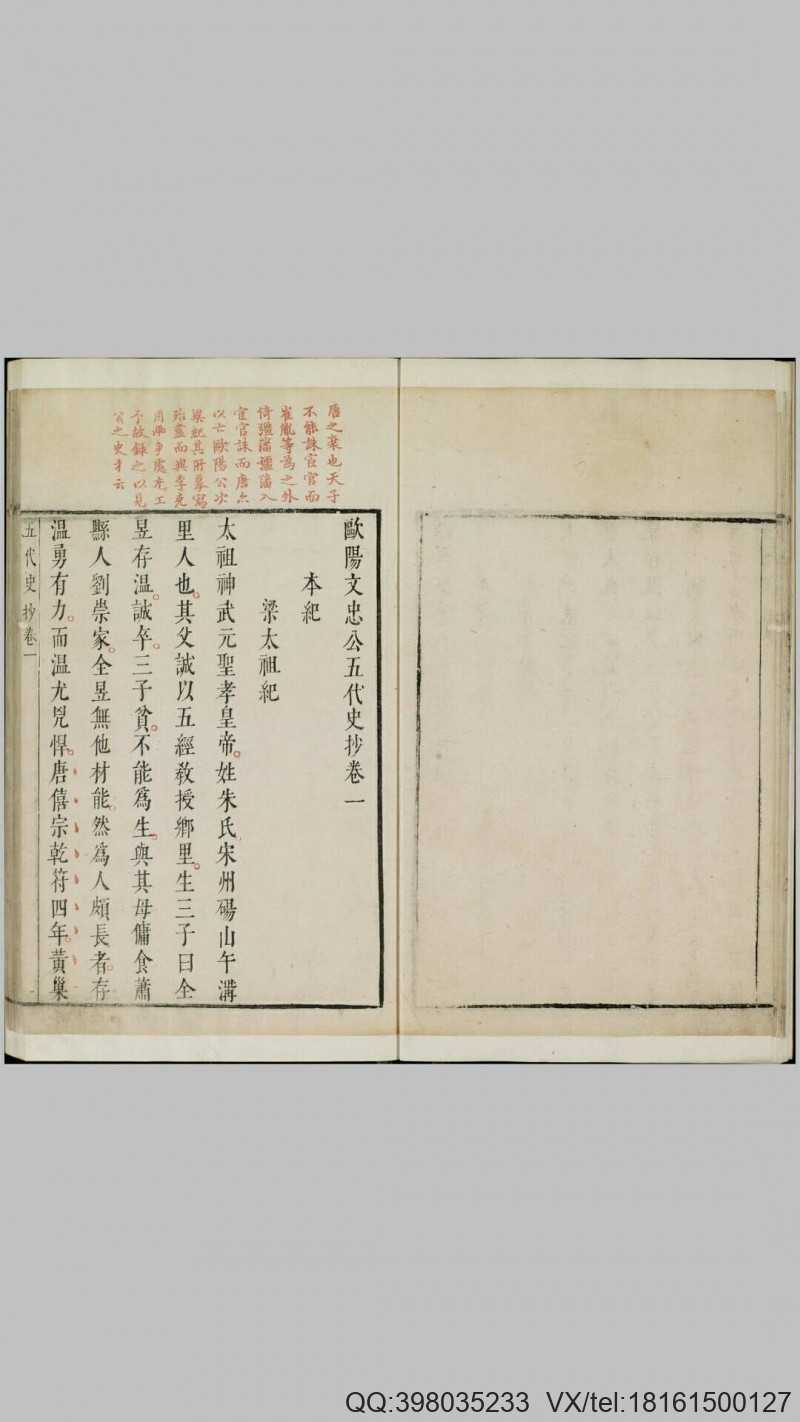 唐之衰也天子
不能誅宦官而
崔胤等為之外
倚彊藩彊藩入
宦官誅而唐亦
以亡歐陽公次
梁紀其所摹寫
殆盡而與李克
用兩爭處尤工
予故錄之以見
公之史才云
歐陽文忠公五代史抄卷一
本紀
梁太祖紀
太祖神武元聖孝皇帝。姓朱氏宋州碭山午溝
里人也。其父誠以五經敎授鄉里。生三子曰全
昱存温。誠卒。三子貧。不能爲生。與其母傭食蕭
縣人劉崇家。全昱無他材能。然爲人頗長者。存
温勇有力。而温尤兇悍。唐僖宗乾符四年。黃巢
五代史抄卷一
一
QQ:398035233 VX/tel:18161500127